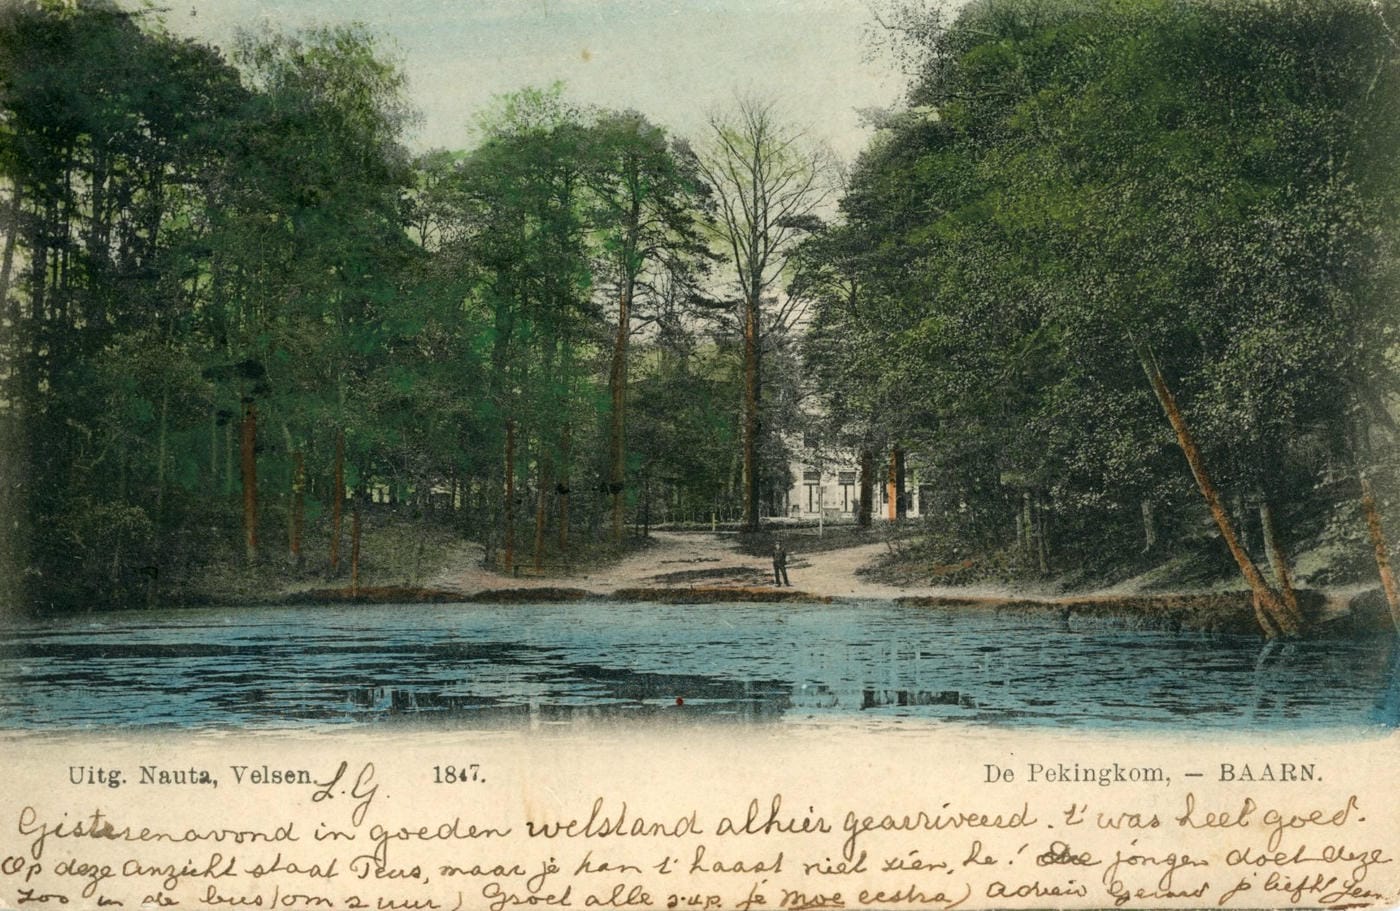 Uitg. Nauta, Velsen. L. G. 1847. De Pekingkom, – BAARN.
Gisterenavond in goeden welstand alhier gearriveerd. 't was heel goed.
Op deze anzicht staat Teus, maar je kan 't haast niet zien, he! jongen doet deze
zoo in de bus (om 2 uur) Groet alle s.v.p. je Moe eestra) je liefh